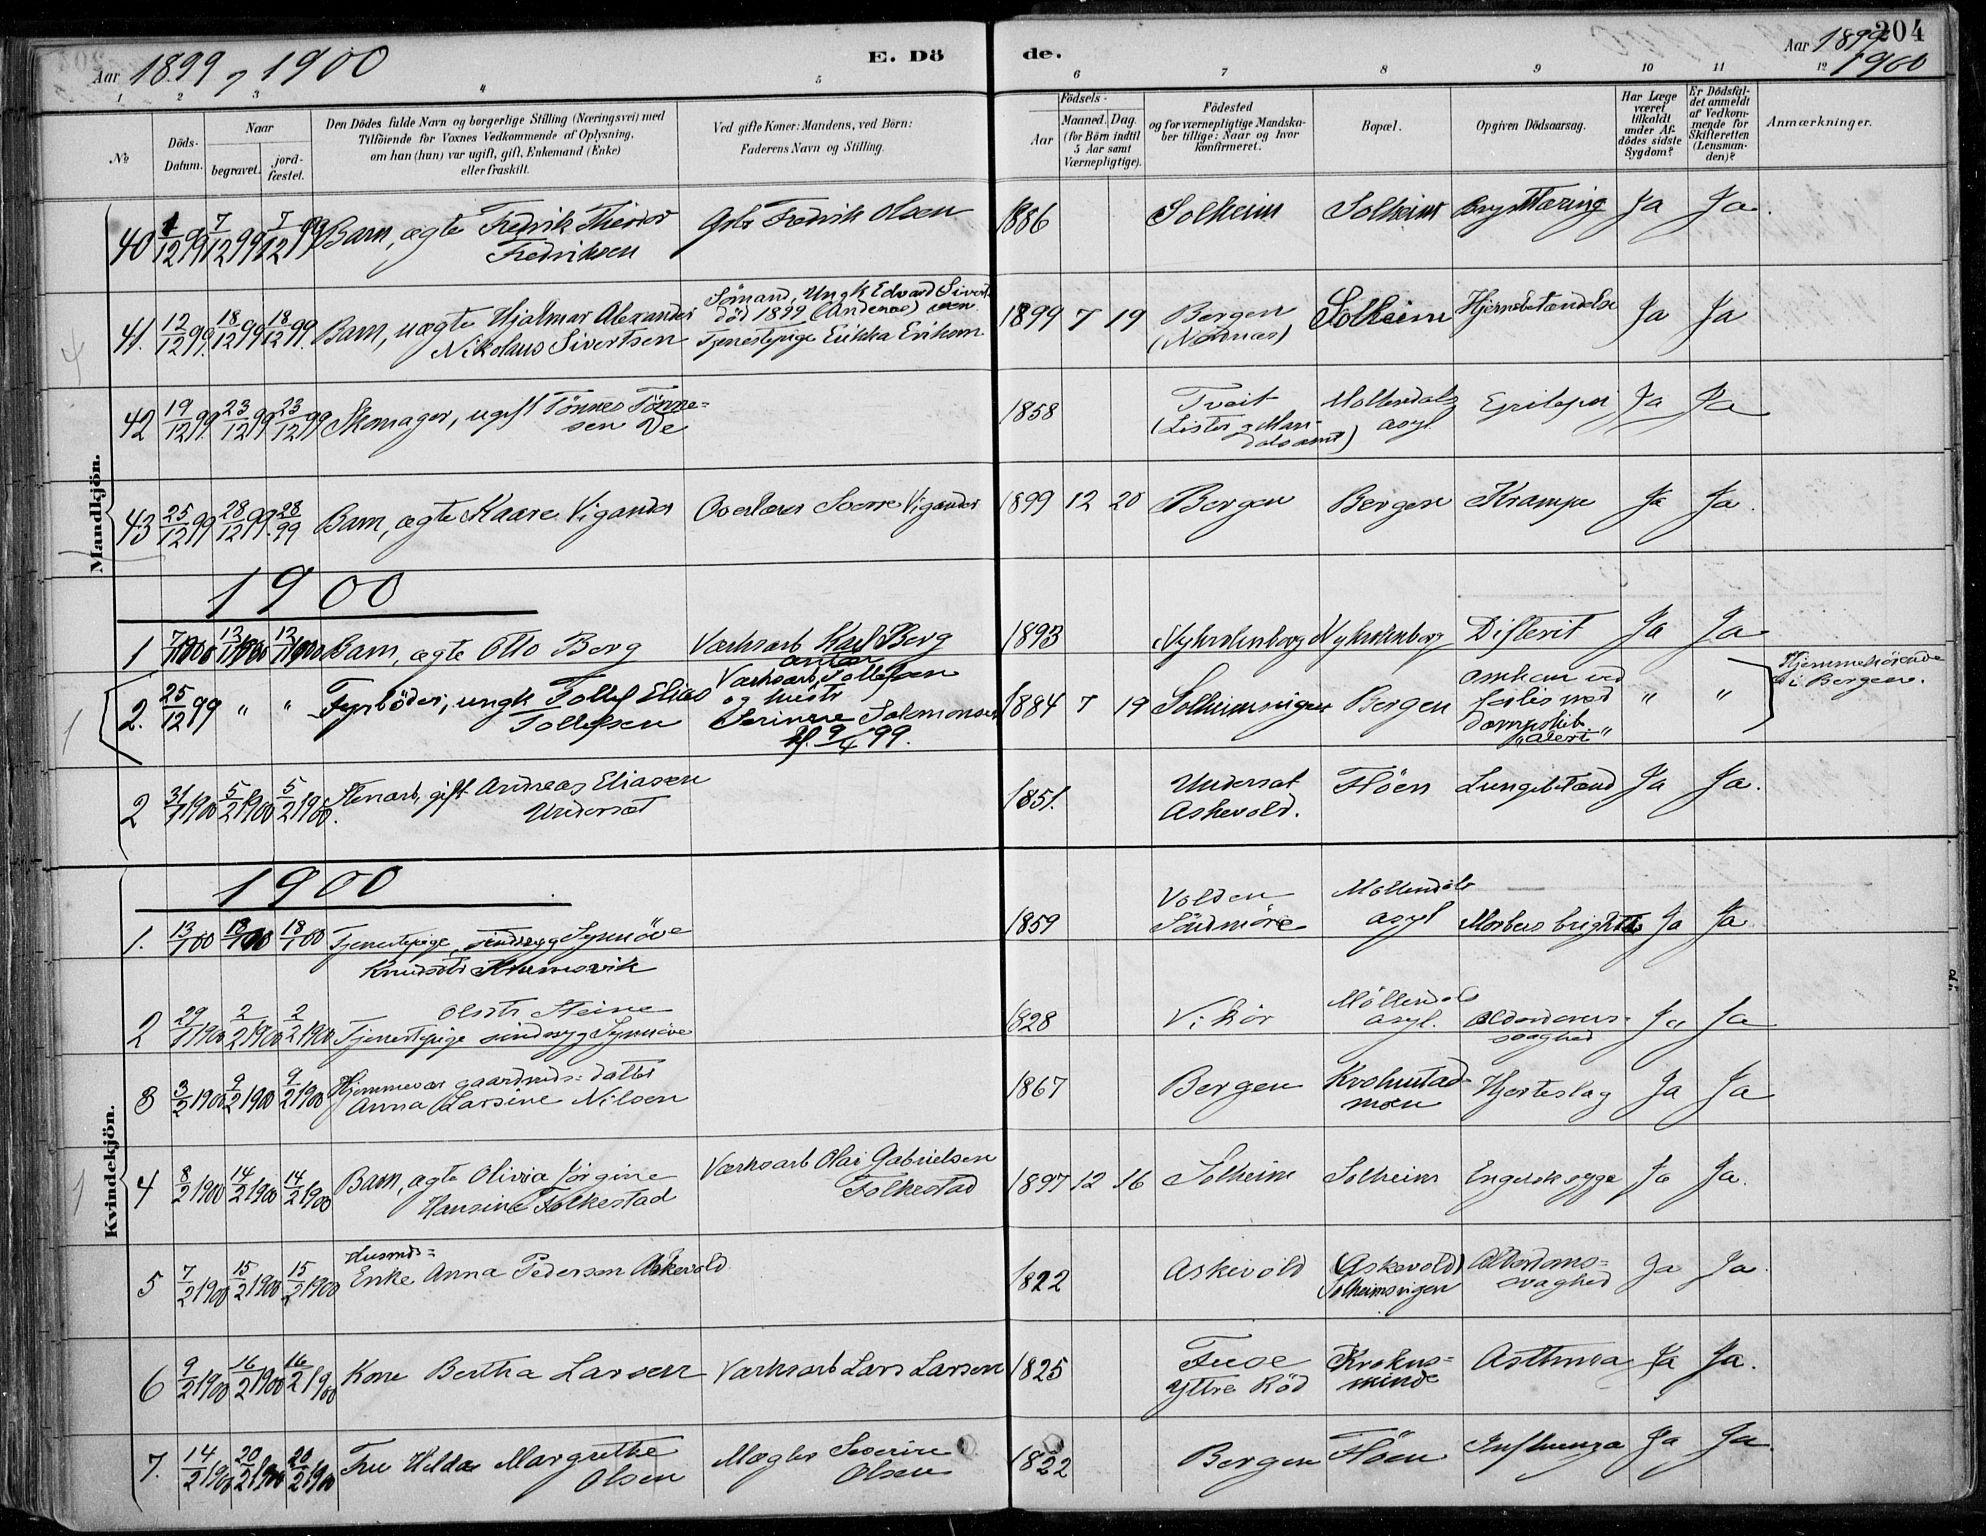 204
Aar 1899, 1900
E. Dö de.
Aar 1899, 1900
1 2 3 4 5 6 7 8 9 10 11 12
No
Döds-Datum.
Naar begravet. jord-fæstet.
Den Dödes fulde Navn og borgerlige Stilling (Næringsvei) med
Tilföiende for Voxnes Vedkommende af Oplysning,
om han (hun) var ugift, gift, Enkemand (Enke)
eller fraskilt.
Ved gifte Koner: Mandens, ved Börn:
Faderens Navn og Stilling.
Födsels-
Aar Maaned. Dag.
(for Börn indtil
5 Aar samt
Værnepligtige).
Födested
og for værnepligtige Mandska-
ber tillige: Naar og hvor
konfirmeret.
Bopæl.
Opgiven Dödsaarsag.
Har Læge
været
tilkaldt
under Af-
dödes sidste
Sygdom?
Er Dödsfal-
det anmeldt
af Vedkom-
mende for
Skifteretten
(Lensman-
den)?
Anmærkninger.
Mandkjön.
40 1/12 99 7/12 99 7/12 99 Barn, ægte Fredrik Theodor
Fredriksen
Fredrik Olsen
1886 Solheim Solheim Brysttæring Ja Ja.
41. 12/12 99 18/12 99 18/12 99. Barn, uægte Hjalmar Alexander
Nikolaus Sivertsen
Sömand, Ungk Edvard Sivert-
död 1899 sen
Tjenestepige Erikka Eriksen
1899 7 19 Bergen
(Nordnæs)
Solheim Hjernebetændelse Ja Ja
42 19/12 99. 23/12 99 23/12 99 Skomager, ugift Tönnes Tönne=
sen Ve
1858 Tveit
(Lister og Man-
dals amt)
Möllendals
asyl
Epilepsi Ja Ja
43 25/12 99 28/12 99. 28/99 Barn, ægte Kaare Vigander Overlærer Sverre Vigander
1899 12 20 Bergen Bergen Krampe Ja Ja.
1900
1 7/1 1900 13/1 1900 13/1 1900 Barn, ægte Otto Berg Værksarb Karl Berg
1893 Nykrohnborg Nykrohnborg Difterit Ja Ja
2. 25/12 99 " " Fyrböder, ungk Tollef Elias
Tollefsen
Værksarb. Tollefsen
og hustr
Serine Salomonsen
9/4 99.
1884 7 19 Solheimsvigen Bergen omkom ved
forlis med
dampskib
"Alert"
" "
Hjemmehörende
i Bergen.
2 31/1 1900 5/2 1900 5/2 1900. Stenarb, gift Andreas Eliasen
Undersæt
1851. Undersæt
Askevold.
Flöen Lungebetænd Ja Ja.
Kvindekjön.
1900
1. 13/1 00 18/1 00 18/1 00 Tjenestepige, sindssyg Synnöve
Knudsdtr
1859 Volden
Söndmöre
Möllendals
asyl
Morbus brightii Ja Ja.
2 29/1 1900 2/2 1900 2/2 1900 Olsdtr Steine
Tjenestepige sindssyg Synnöve
1828 Vikör Möllendals
asyl.
Alderdoms-
svaghed
Ja Ja
3 3/2 1900 9/2 1900 9/2 1900 Hjemmevær gaardmds= datter
Anna Larsine Nilsen
1867 Bergen Krohnstad-
moen
Hjerteslag Ja Ja
4 8/2 1900 14/2 1900 14/2 1900 Barn, ægte Olivia Jörgine
Hansine Folkestad
Værksarb Olai Gabrielsen
Folkestad
1897 12 16 Solheim Solheim Engelsk syge Ja Ja.
5 7/2 1900 15/2 1900 15/2 1900 Husmds=
Enke Anna Pedersen Askevold
1822 Askevold (Askevold)
Solheimsvigen
Alderdoms=
svaghed
Ja Ja.
6 9/2 1900 16/2 1900 16/2 1900 Kone Bertha Larsen Værksarb Lars Larsen
1825 Fuse
Yttre Röd
Krohns=
minde
Asthma Ja Ja.
7. 14/2 1900 20/2 1900 20/2 1900 Fru Hilda Margrethe
Olsen
Mægler Severin
Olsen
1822 Bergen Flöen Influenza Ja Ja.